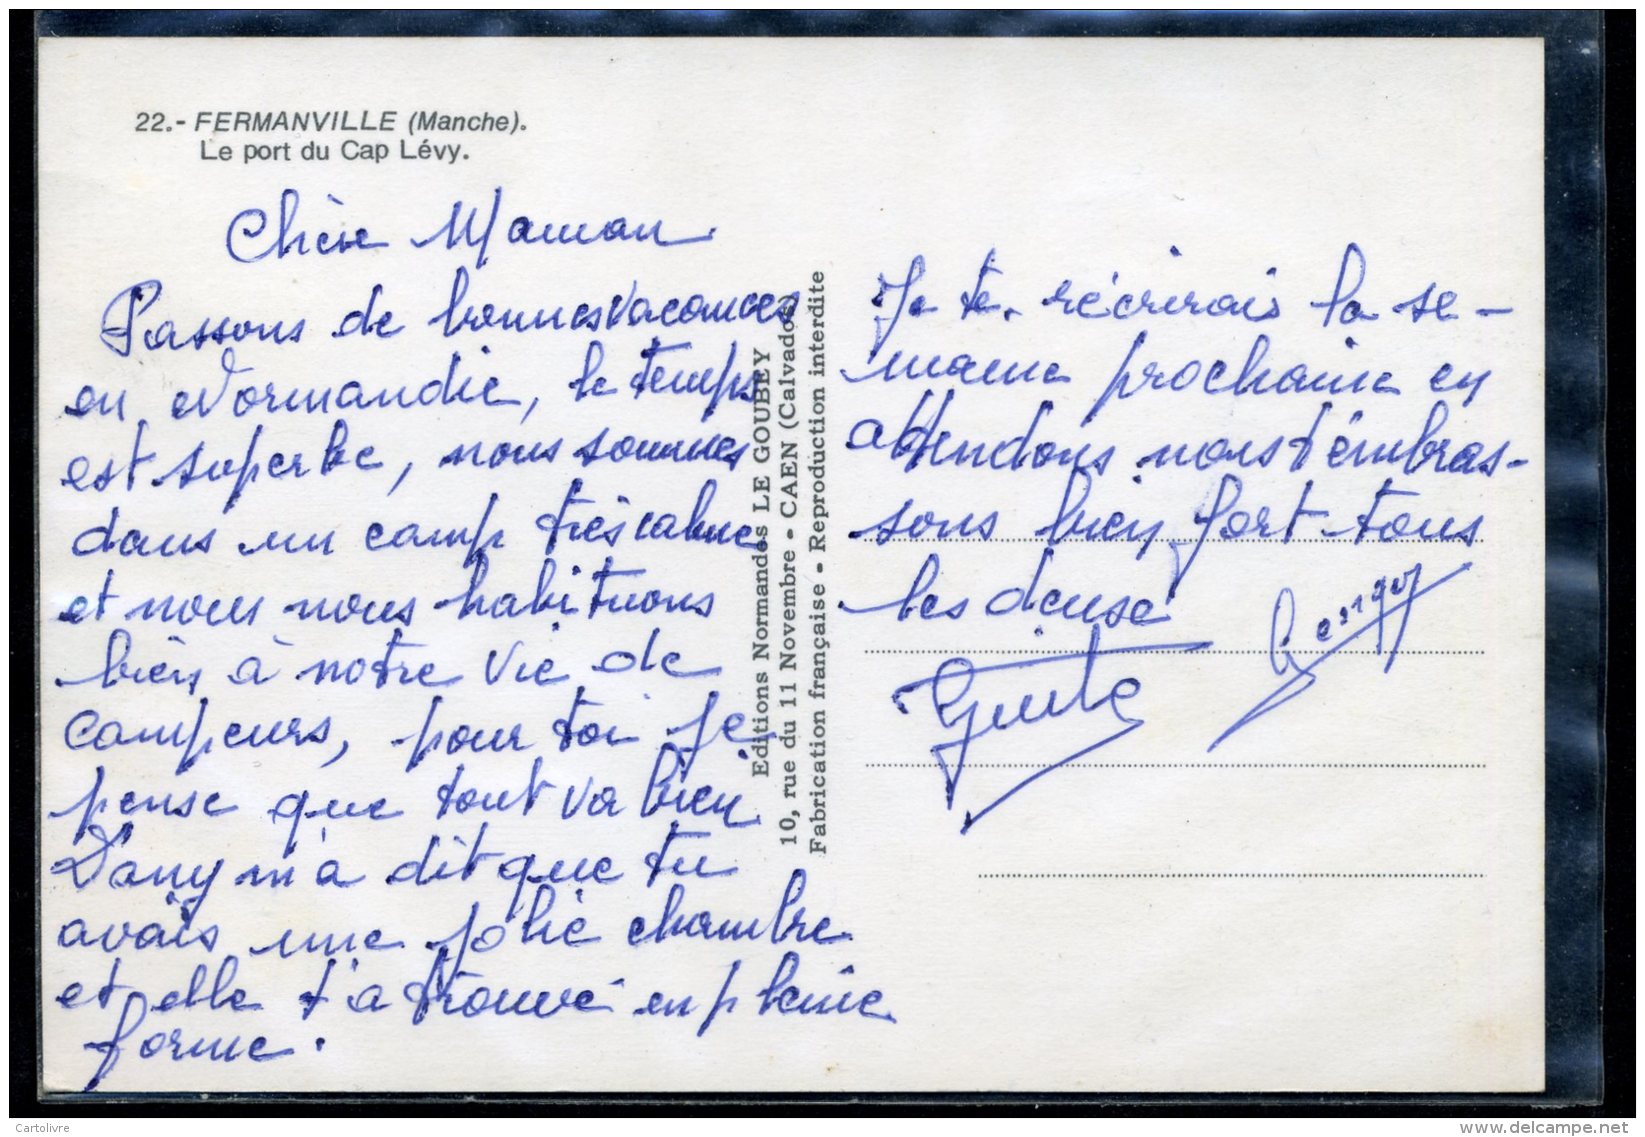 22.- FERMANVILLE (Manche).
Le port du Cap Lévy.
Chère Maman
Passons de bonnes vacances
en Normandie, le temps
est superbe, nous sommes
dans un camp très calme
et nous nous habituons
bien à notre vie de
campeurs, pour toi je
pense que tout va bien
Dany m'a dit que tu
avais une jolie chambre
et elle t'a trouvé en pleine
forme.
Editions Normandes LE GOUBEY
10, rue du 11 Novembre - CAEN (Calvados)
Fabrication française - Reproduction interdite
Je te récrirais la se-
maine prochaine en
attendons nous t'embras-
sons bien fort tous
les deuse
Cartolivre
www.delcampe.net